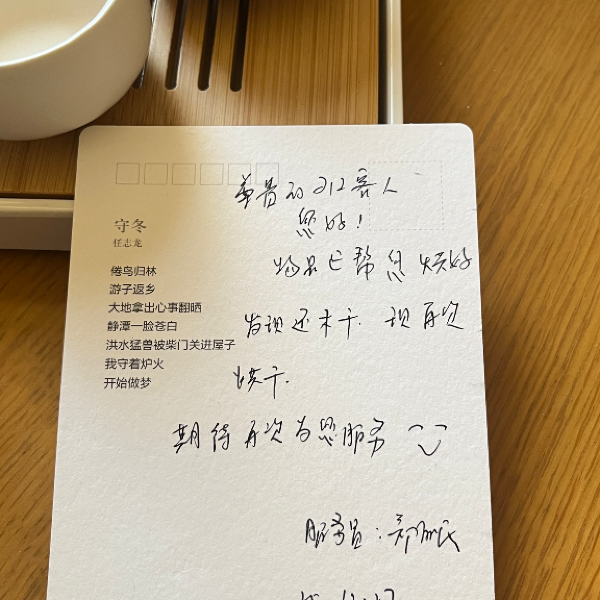 尊贵的212客人
您好!
物品已帮您烘好
发现还未干.现再次
烘干.
期待再次为您服务
服务员:郑
守冬
任志龙
倦鸟归林
游子返乡
大地拿出心事翻晒
静潭一脸苍白
洪水猛兽被柴门关进屋子
我守着炉火
开始做梦